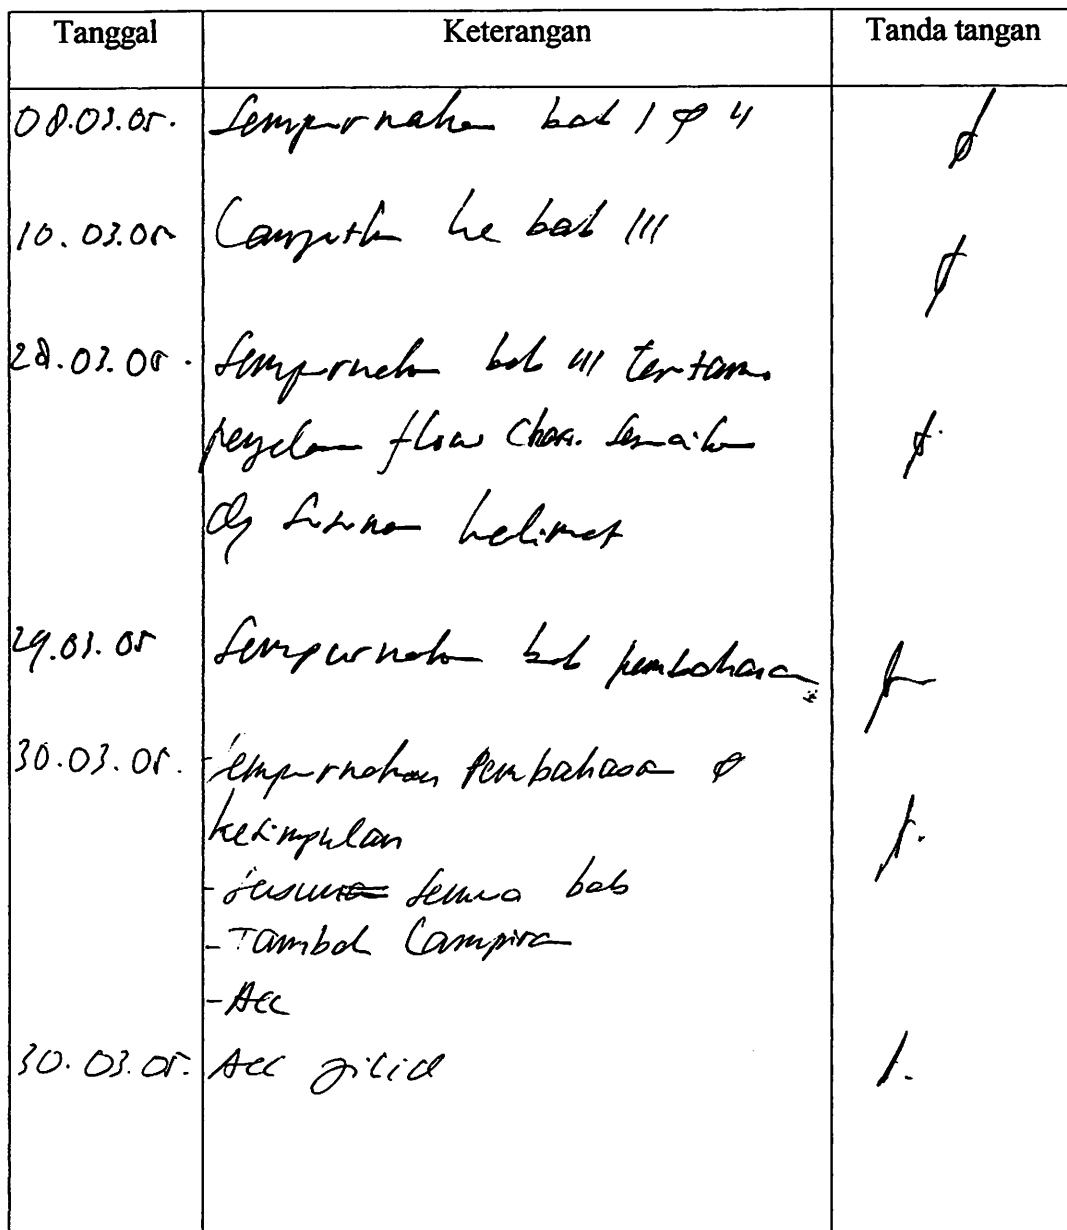 Tanggal Keterangan Tanda tangan
08.03.05. Sempurnakan bab I & II
10.03.05 Lanjutkan ke bab III
28.03.05. Sempurnakan bab III terutama
flow char. Sesuaikan
dg susunan kalimat
29.03.05 Sempurnakan bab pembahasan
30.03.05. Sempurnakan Pembahasan &
kesimpulan
- susun semua bab
- Tambah Lampiran
- Acc
30.03.05. Acc jilid